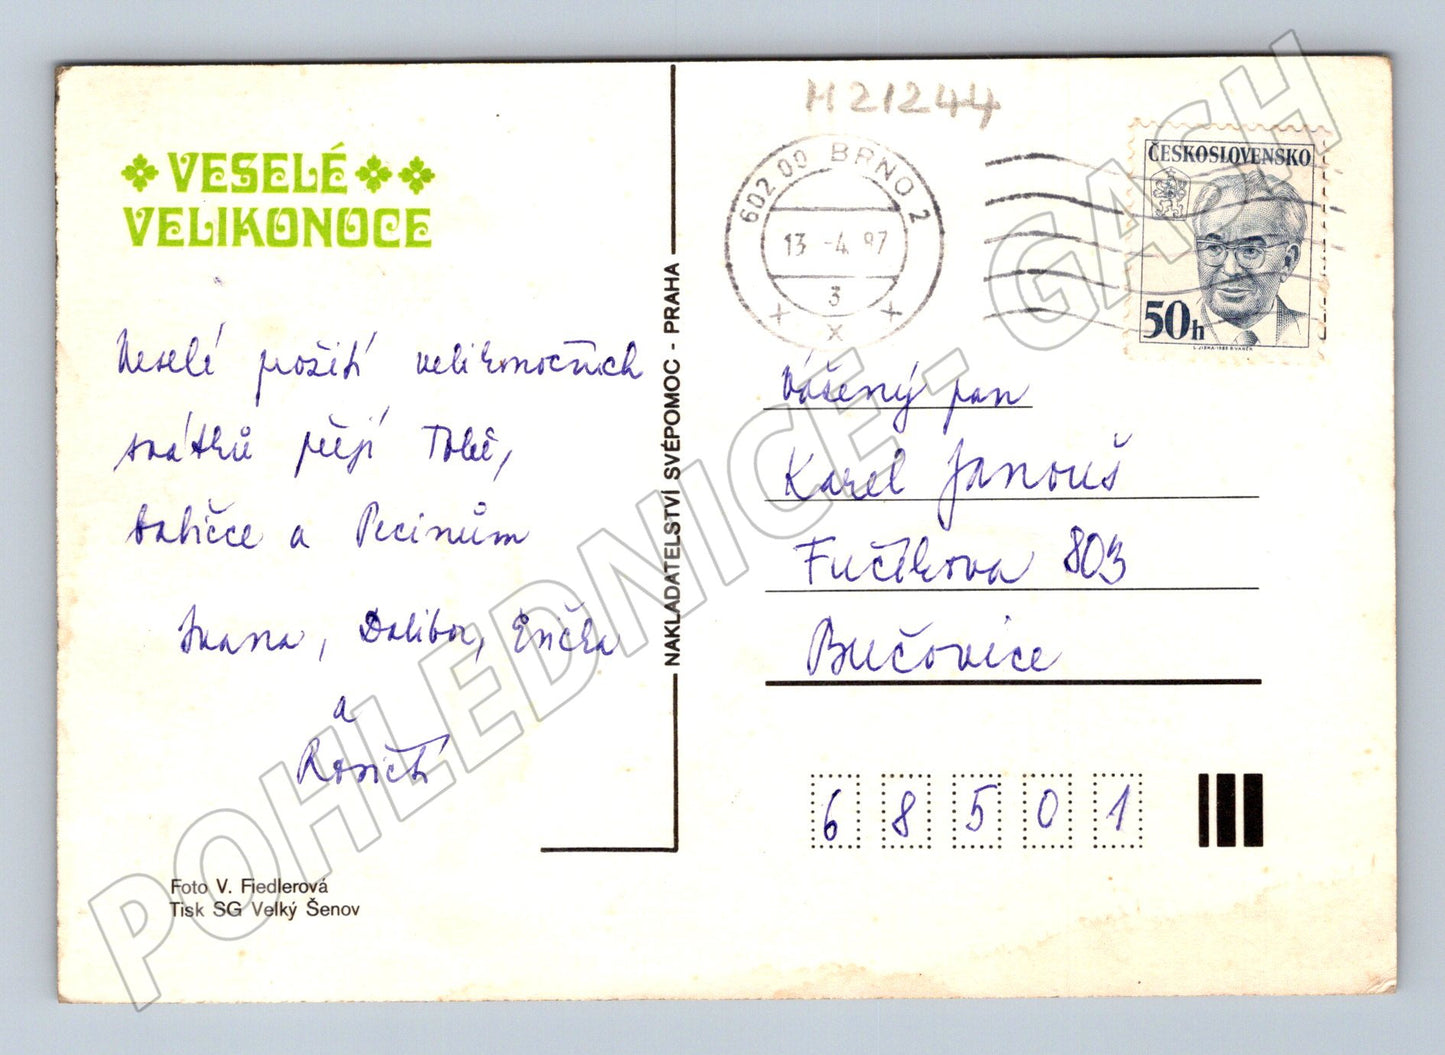 VESELÉ
VELIKONOCE
Veselé prožití velikonočních
svátků přejí Tobě,
babičce a Pecinům
Ivana, Dalibor, Erička
a
Rosičtí
Foto V. Fiedlerová
Tisk SG Velký Šenov
NAKLADATELSTVÍ SVÉPOMOC - PRAHA
H21244
602 00 BRNO 2
13 -4. 87
3
x x x
ČESKOSLOVENSKO
50h
Vážený pan
Karel Janouš
Fučíkova 803
Bučovice
68501
POHLEDNICE - GASH